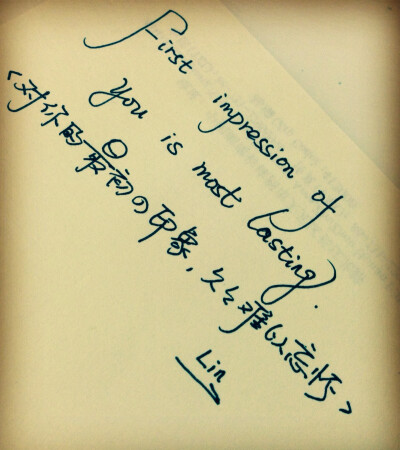 First impression of
you is most lasting.
《对你的最初の印象，久久难以忘怀》
Lin